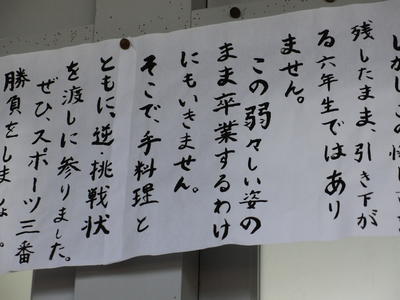 しかし、この悔し
残したまま、引き下が
る六年生ではあり
ません。
この弱々しい姿の
まま卒業するわけ
にもいきません。
そこで、手料理と
ともに、逆・挑戦状
を渡しに参りました。
ぜひ、スポーツ三番
勝負をしましょう。